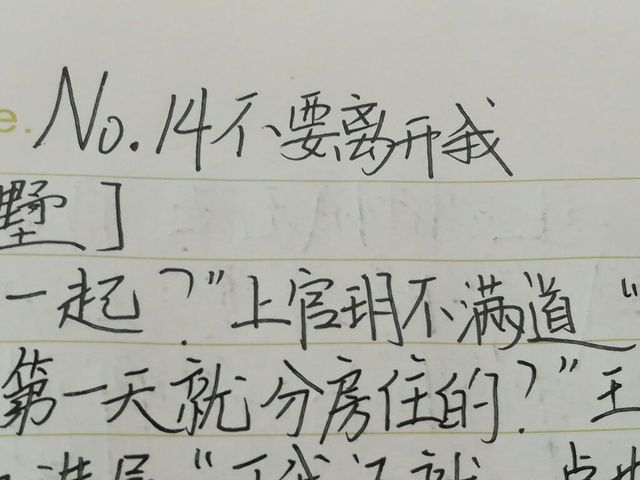 e. No.14不要离开我
墅]
一起?”上官玥不满道“
第一天就分房住的?”王